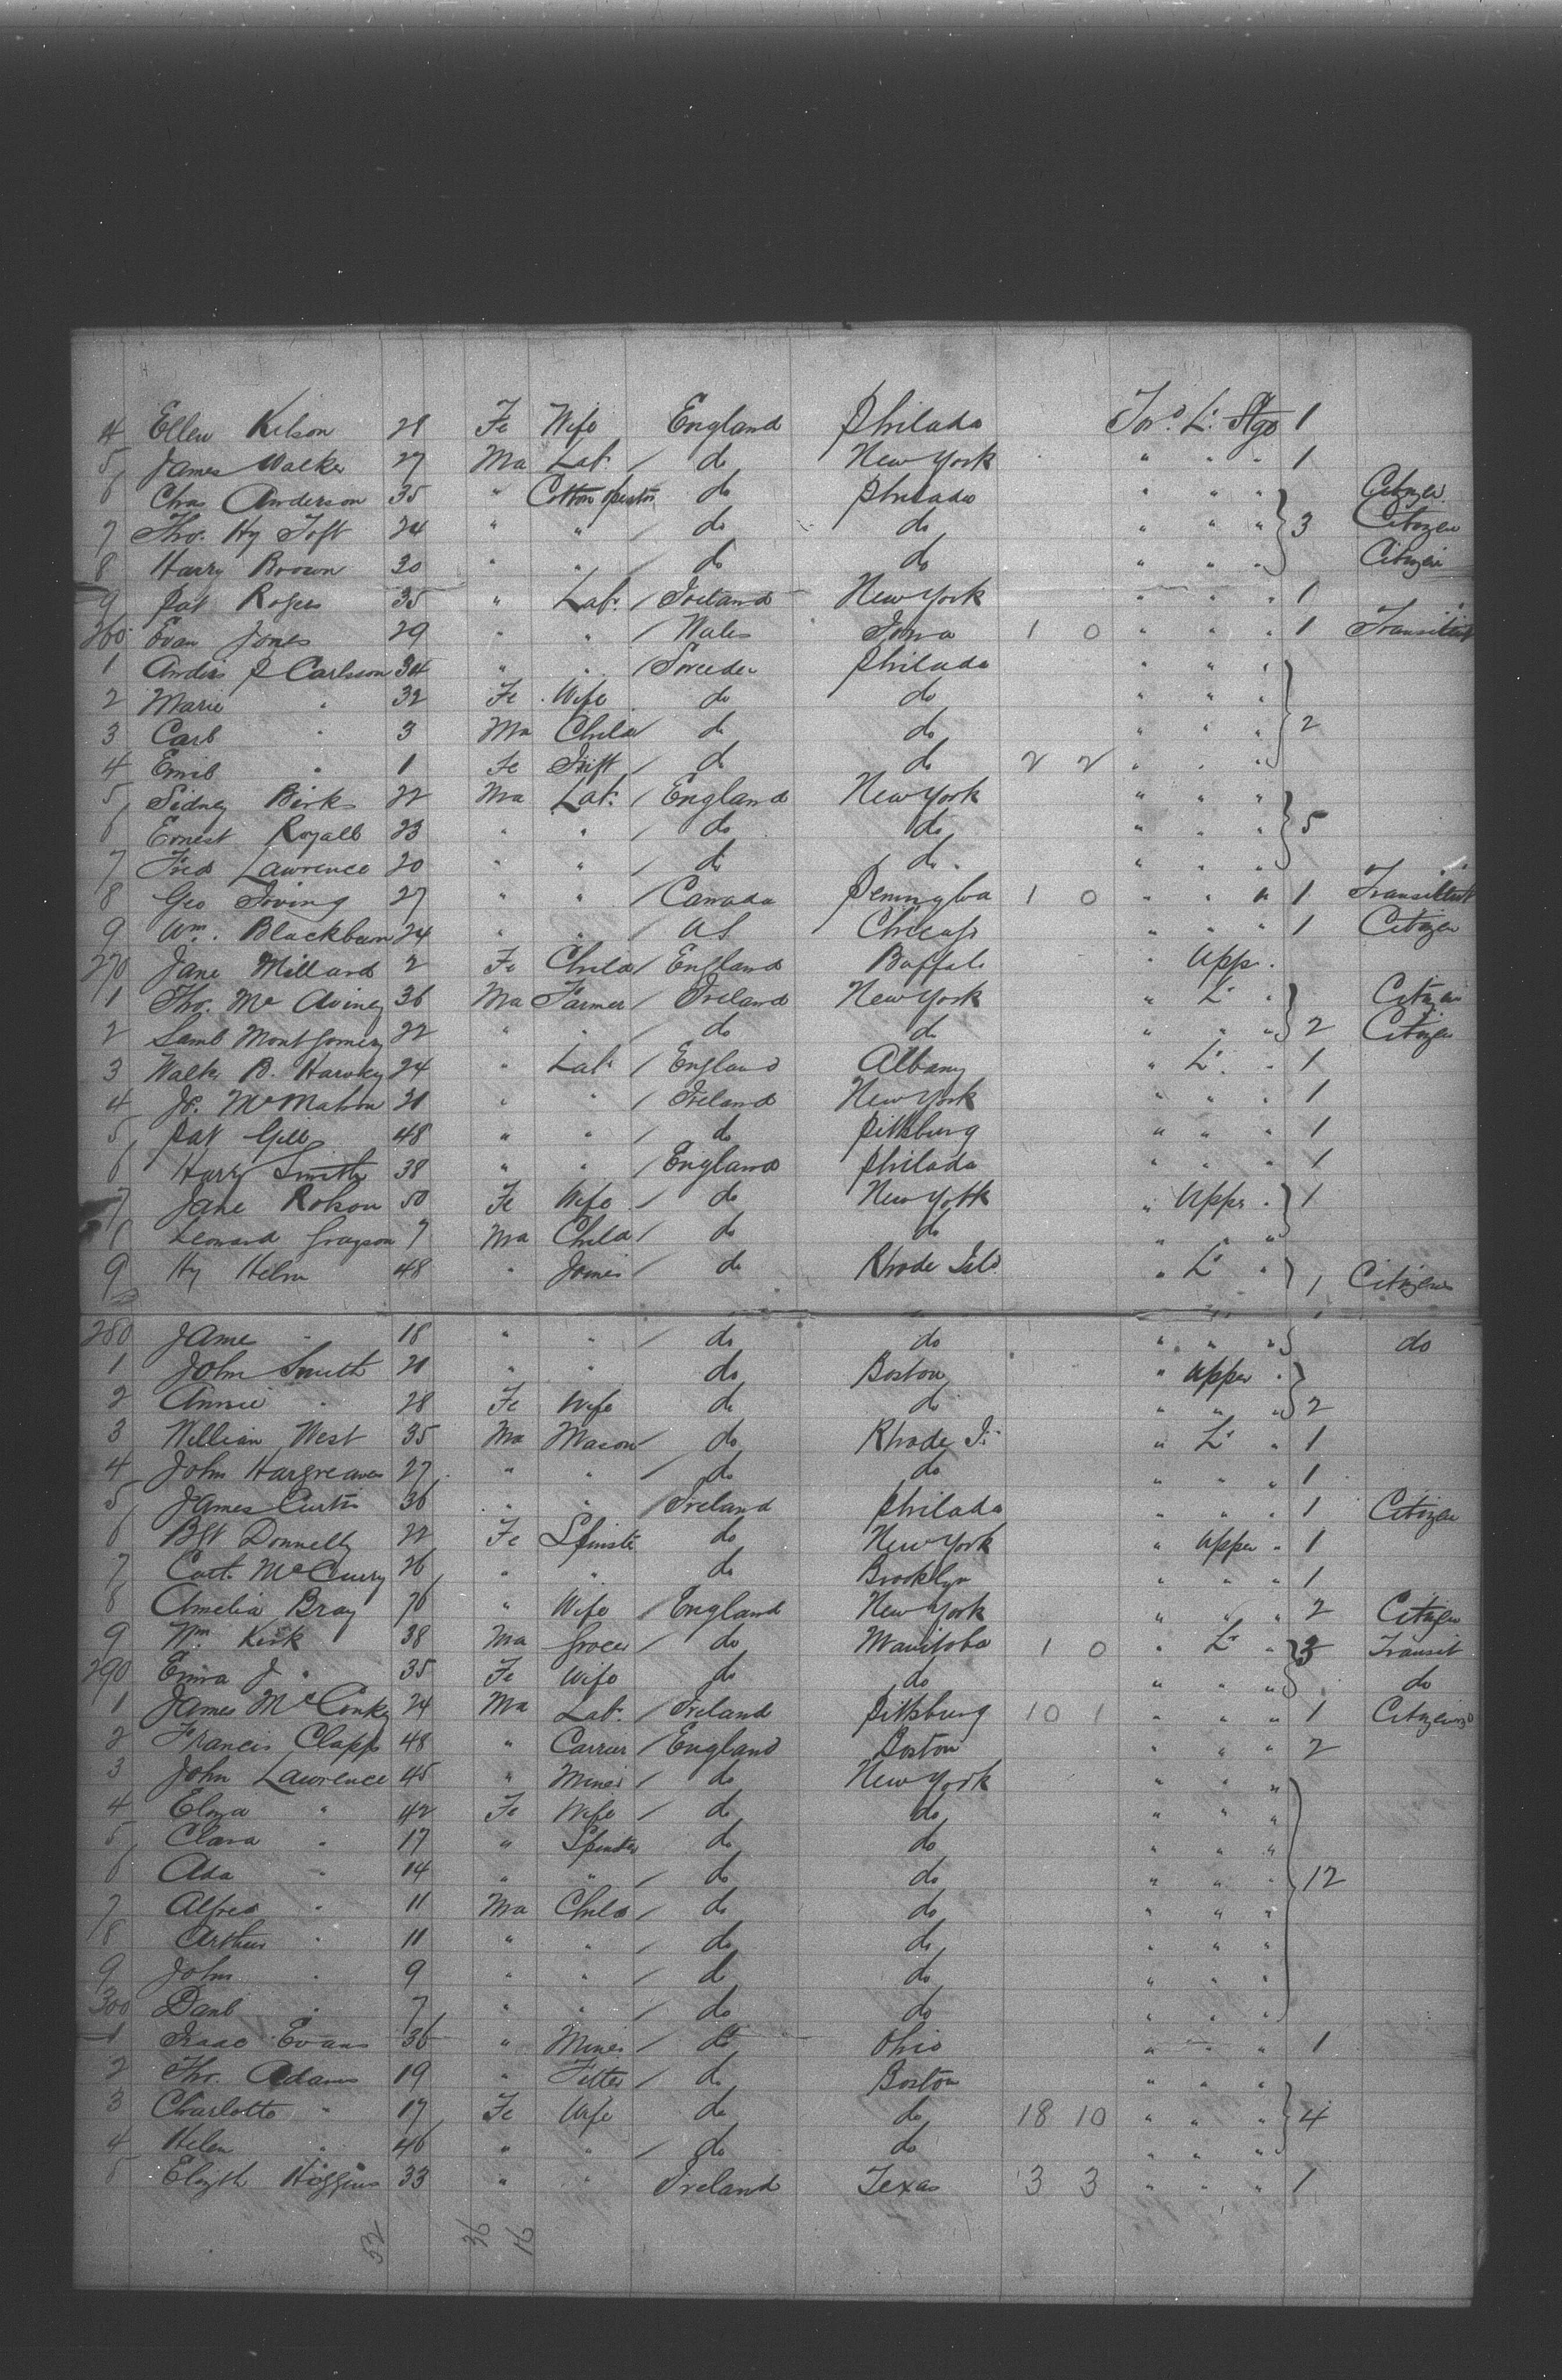 4 Ellen Kelson 21 Fe Wife England Philada For'd L. Stge 1
5 James Walker 27 Ma Lab. / do New York " " " 1
6 Chas Anderson 35 " Cotton do Philada " " " Citizen
7 Tho. Hy Toft 24 " " / do do " " " 3 Citizen
8 Harry Brown 30 " " / do do " " " Citizen
9 Pat Rogers 35 " Lab. / Ireland New York " " " 1
260 Evan Jones 29 " " / Wales Iowa 1 0 " " " 1
1 P Carlsson 34 " " / Sweden Philada " " "
2 Marie " 32 Fe Wife do do " " "
3 Carl " 3 Ma Child / do do " " " 2
4 Emil " 1 Fe Inft / do do 2 2 " " "
5 Sidney Birks 22 Ma Lab. / England New York " " "
6 Ernest Royall 23 " " / do do " " " 5
7 Fred Lawrence 20 " " / do do " " "
8 Geo Irving 27 " " / Canada 1 0 " " " 1
9 Wm. Blackburn 24 " " / US Chicago " " " 1 Citizen
270 Jane Millard 2 Fe Child / England Buffalo " Upp "
1 Tho. Mc 36 Ma Farmer / Ireland New York " L. " Citizen
2 Saml Montgomery 22 " " / do do " " " 2 Citizen
3 B. 24 " Lab. / England Albany " L. " 1
4 Jo. McMahon 21 " " / Ireland New York " " " 1
5 Pat Gill 48 " " / do Pittsburg " " " 1
6 Harry Smith 38 " " / England Philada " " " 1
7 Jane Robson 50 Fe Wife / do New York " Upper " 1
8 Leonard Grayson 7 Ma Child / do do " " "
9 Hy Helm 48 " Joiner / do Rhode Isld " L. " 1 Citizens
280 Jame " 18 " " / do do " " " do
1 John Smith 21 " " do Boston " Upper "
2 Annie " 28 Fe Wife do do " " " 2
3 William West 35 Ma Mason / do Rhode I. " L. " 1
4 John Hargreaves 27 " " / do do " " " 1
5 James Curtis 36 " " / Ireland Philada " " " 1 Citizen
6 Bgt Donnelly 22 Fe Spinstr do New York " Upper " 1
7 Cath. McCurry 26 " " do Brooklyn " " " 1
8 Amelia Bray 76 " Wife / England New York " " " 2 Citizen
9 Wm Kirk 38 Ma Grocer / do Manitoba 1 0 " L. " 3 Transit
290 Emma J " 35 Fe Wife do do " " " do
1 James McConky 24 Ma Lab. / Ireland Pittsburg 10 1 " " " 1
2 Francis Clapp 48 " / England Boston " " " 2
3 John Lawrence 45 " Miner / do New York " " "
4 Eliza " 42 Fe Wife / do do " " "
5 Clara " 17 " Spinster do do " " "
6 Ada " 14 " " / do do " " " 12
7 Alfred " 11 Ma Child / do do " " "
8 Arthur " 11 " " / do do " " "
9 John " 9 " " / do do " " "
300 Danl " 7 " " / do do " " "
1 Isaac Evans 36 " Miner / do Ohio " " " 1
2 Tho. Adams 19 " Fitter / do Boston " " "
3 Charlotte " 17 Fe Wife do do 18 10 " " " 4
4 Helen " 46 " " / do do " " "
5 Elizth Higgins 33 " " Ireland Texas 3 3 " " " 1
52 36 16